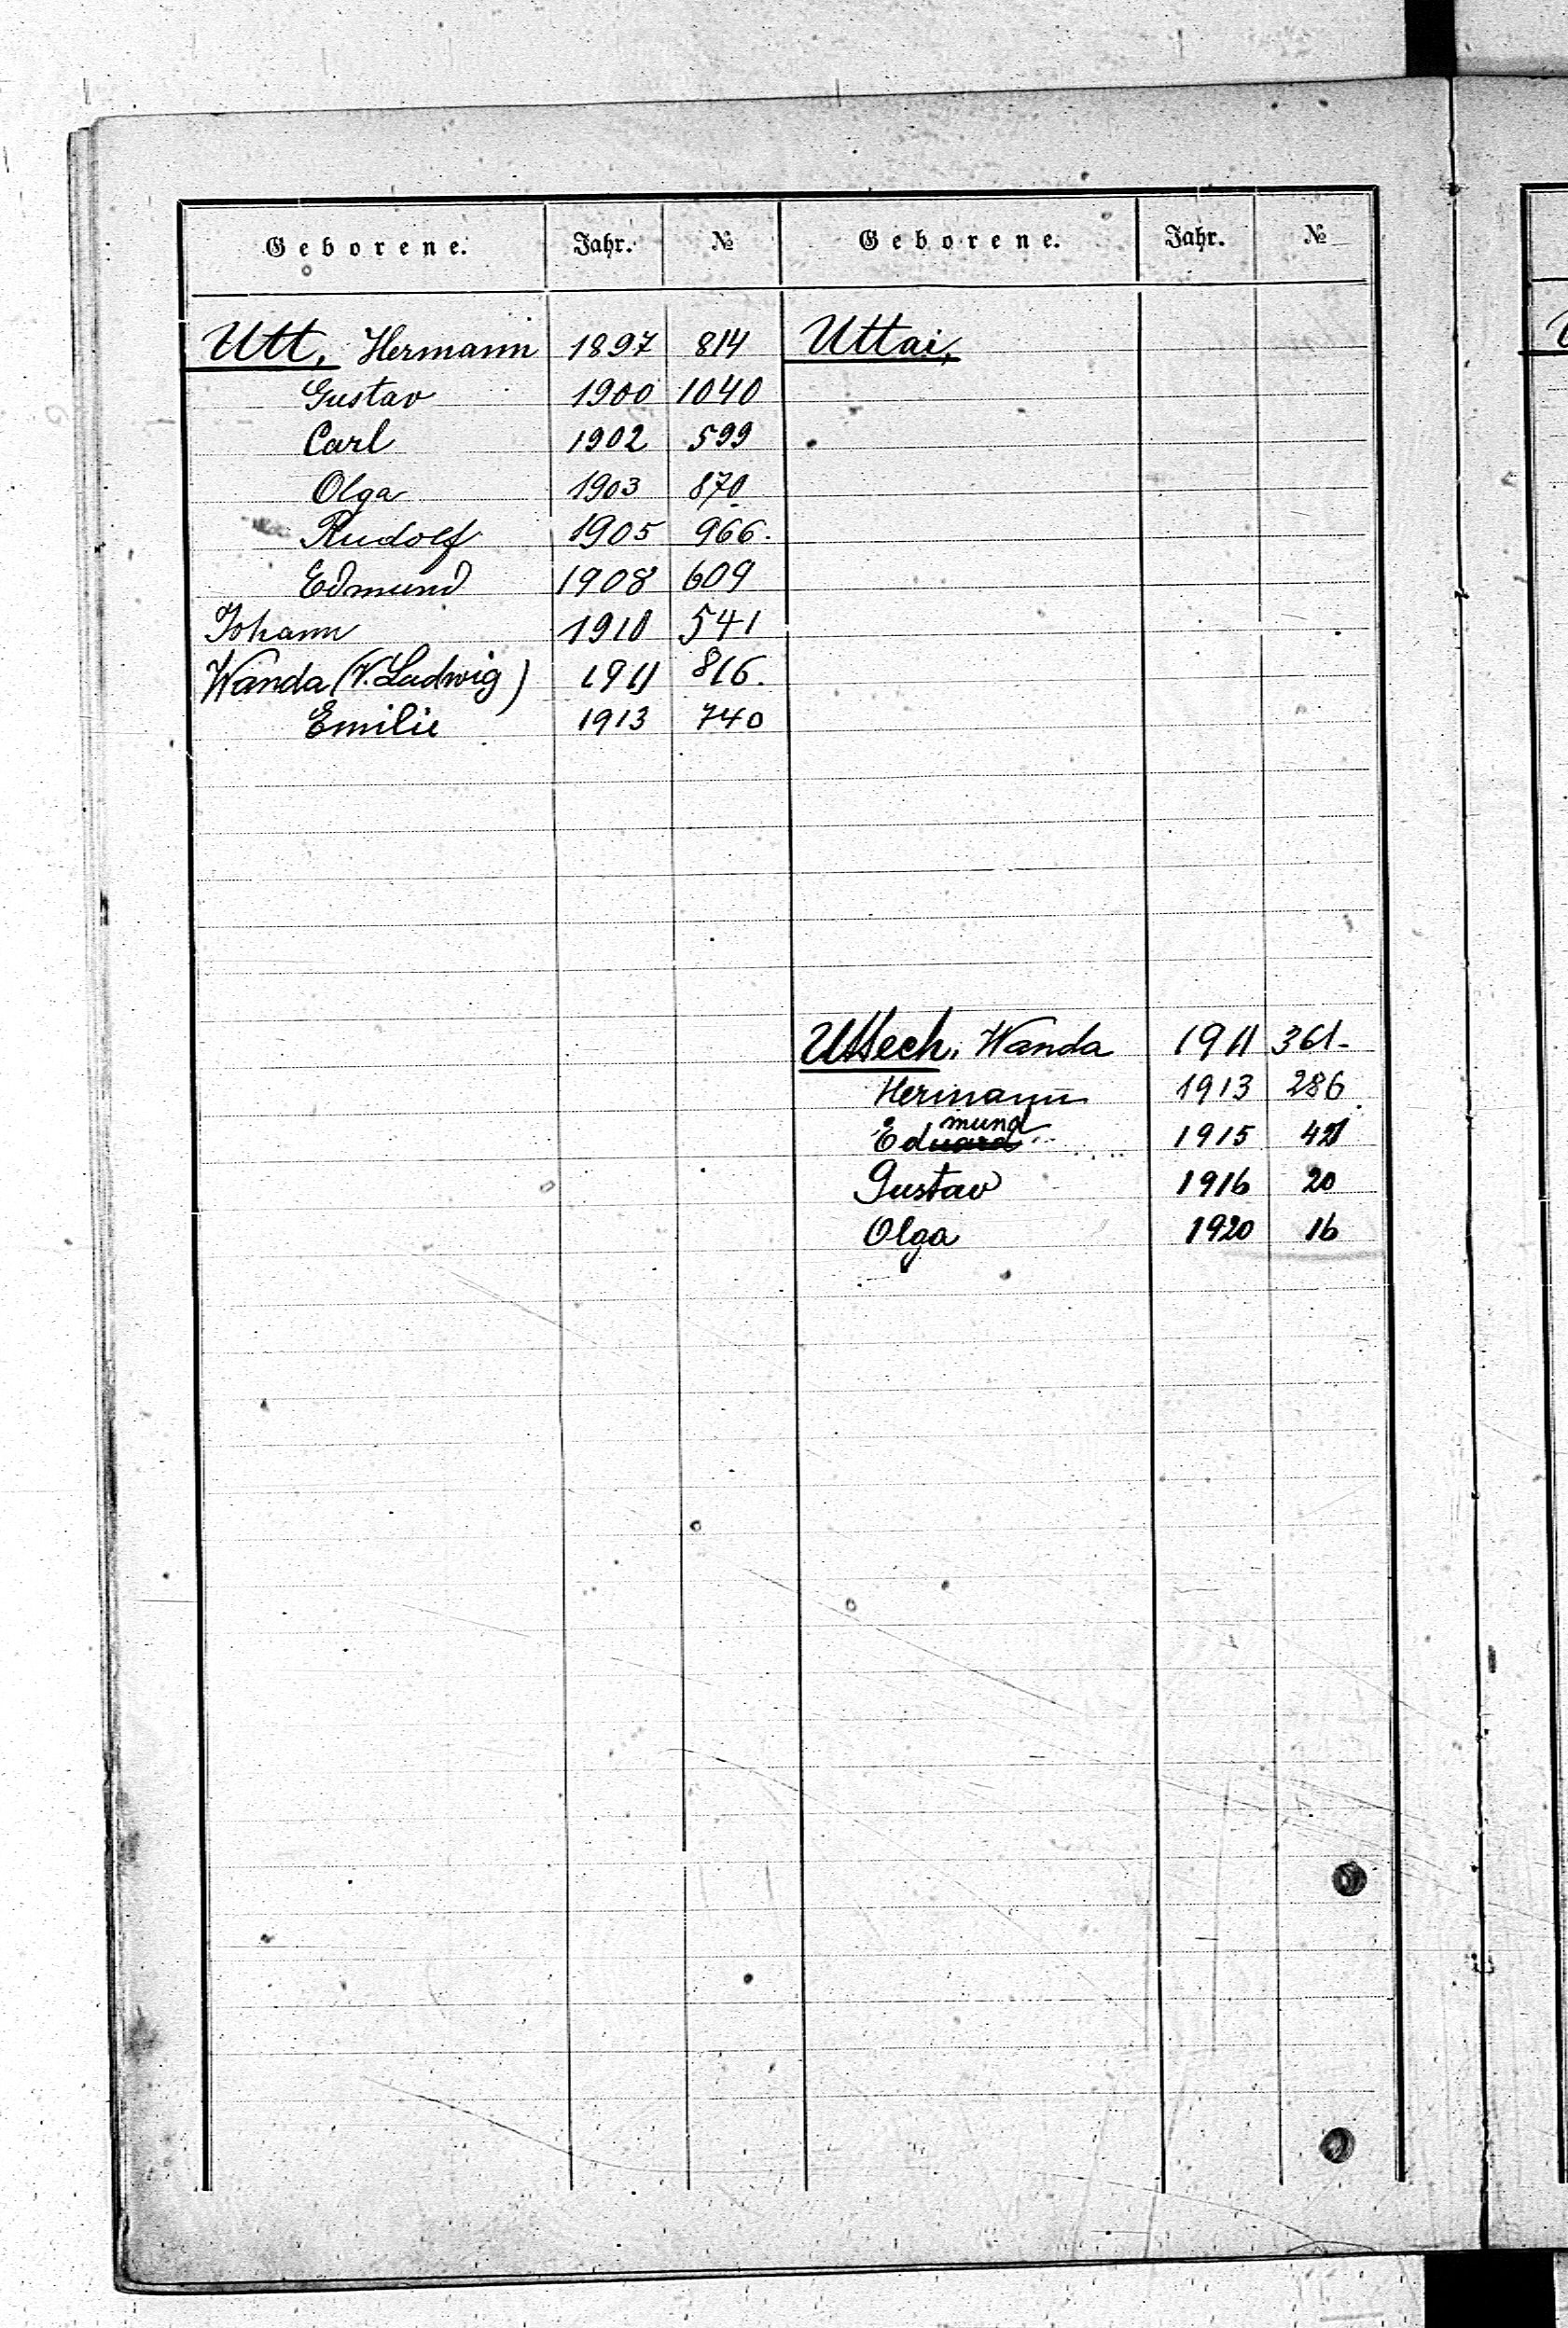 Geborene. Jahr. №
Utt, Hermann 1897 814
Gustav 1900 1040
Carl 1902 599
Olga 1903 870
Rudolf 1905 966.
Edmund 1908 609
Johann 1910 541
Wanda (V. Ludwig) 1911 816.
Emilie 1913 740
Geborene. Jahr. №
Uttai,
Uttech, Wanda 1911 361-
Hermann 1913 286
mund
Eduard 1915
Gustav 1916 20
Olga 1920 16